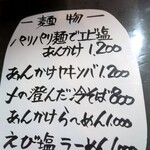 ― 麺 物 ―
パリパリ麺でエビ塩
あんかけ 1.200
あんかけヤキソバ 1.200
の澄んだ冷そば 800
あんかけらーめん 1000
えび塩ラーメン 1000